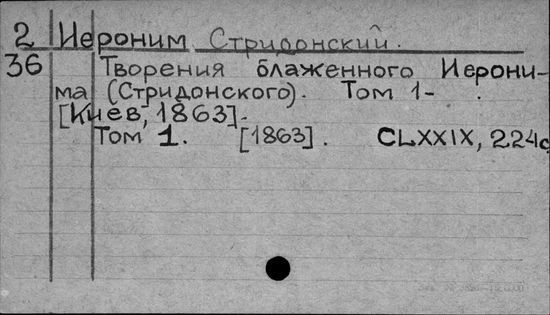 2 Иероним Стридонский.
36 Творения блаженного Иерони-
ма (Стридонского). Том 1- .
[Киев, 1863]-
Том 1. [1863]. CLXXIX, 224с